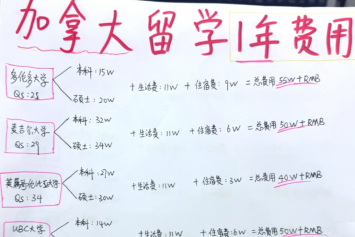 加拿大留学1年费用
多伦多大学
QS:25
本科:15W
硕士:20W
+生活费:11W + 住宿费:9W = 总费用 55W+RMB
麦吉尔大学
QS:29
本科:32W
硕士:34W
+生活费:11W + 住宿费:6W = 总费用 50W+RMB
QS:34
本科:27W
硕士:30W
+生活费:11W + 住宿费:3W = 总费用 40W+RMB
UBC大学
本科:14W
+生活费:11W + 住宿费:6W = 总费用 50W+RMB